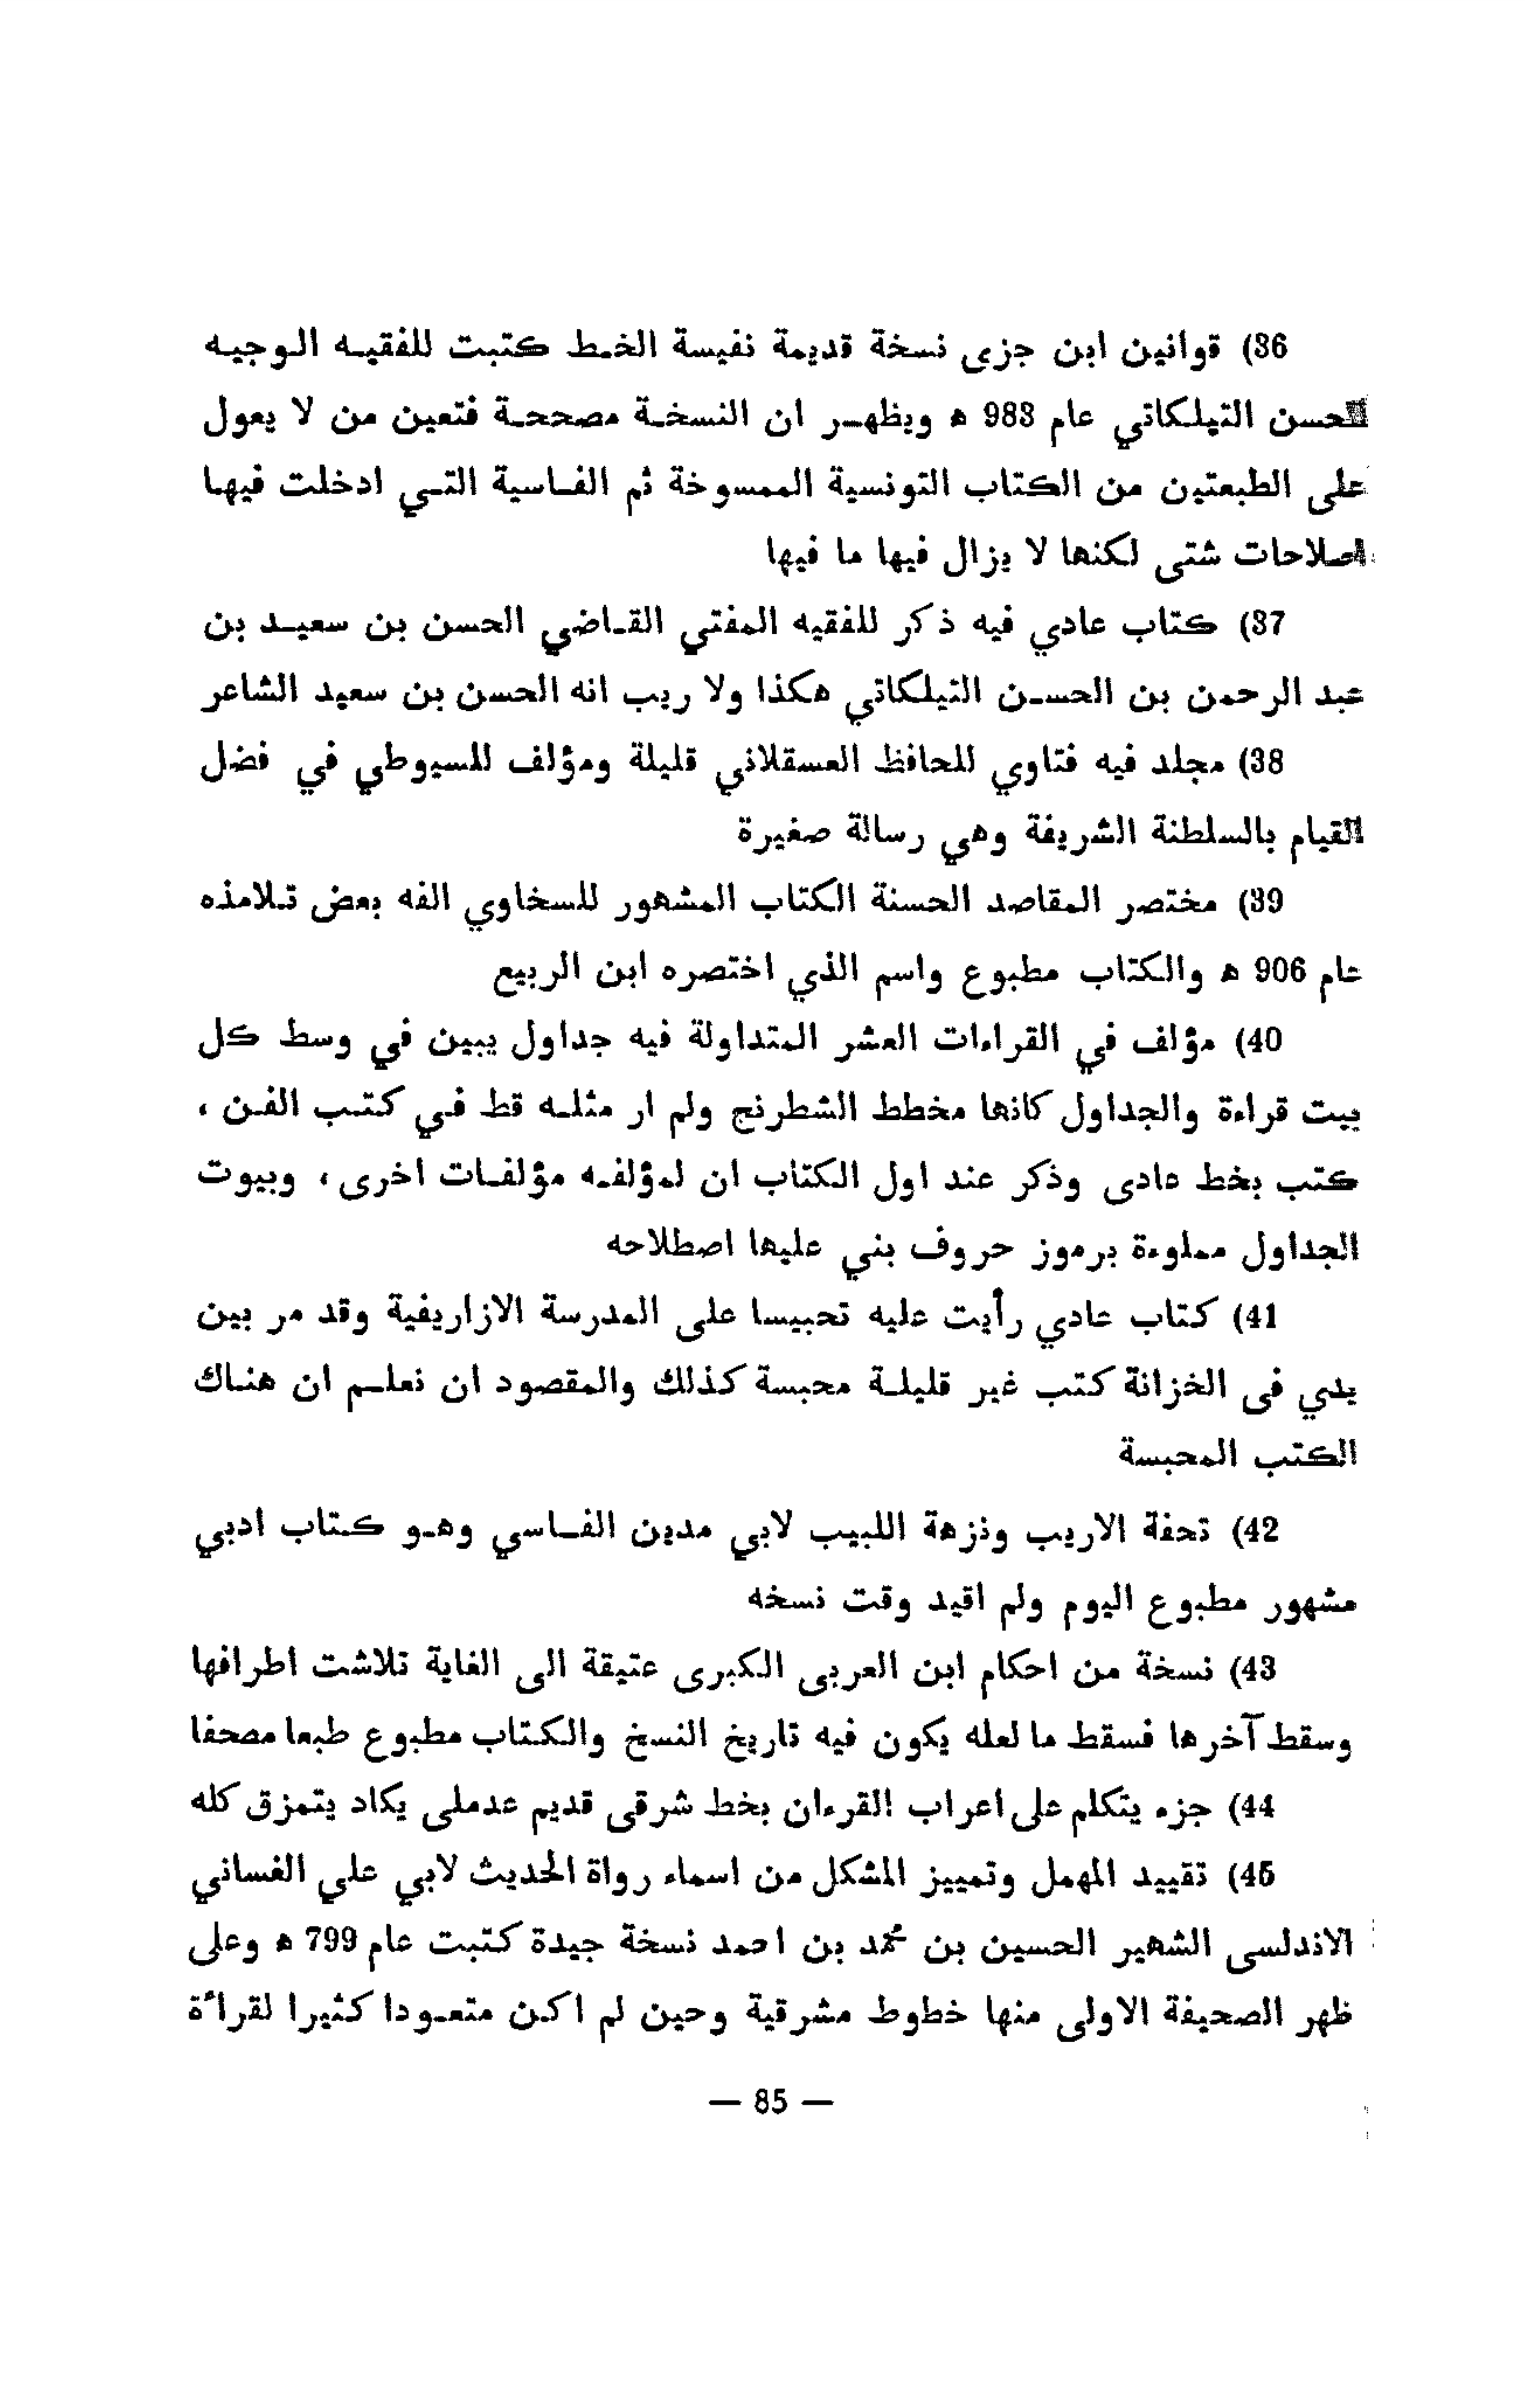 36) قوانين ابن جزى نسخة قديمة نفيسة الخط كتبت للفقيه الوجيه
الحسن التيلكاتي عام 988 ه ويظهر ان النسخة مصححة فتعين من لا يعول
على الطبعتين من الكتاب التونسية الممسوخة ثم الفاسية التي ادخلت فيها
اصلاحات شتى لكنها لا يزال فيها ما فيها
37) كتاب عادي فيه ذكر للفقيه المفتي القاضي الحسن بن سعيد بن
عبد الرحمن بن الحسن التيلكاتي هكذا ولا ريب انه الحسن بن سعيد الشاعر
38) مجلد فيه فتاوي للحافظ العسقلاني قليلة ومؤلف للسيوطي في فضل
القيام بالسلطنة الشريفة وهي رسالة صغيرة
39) مختصر المقاصد الحسنة الكتاب المشهور للسخاوي الفه بعض تلامذه
عام 906 ه والكتاب مطبوع واسم الذي اختصره ابن الربيع
40) مؤلف في القراءات العشر المتداولة فيه جداول يبين في وسط كل
بيت قراءة والجداول كانها مخطط الشطرنج ولم ار مثله قط في كتب الفن ،
كتب بخط عادى وذكر عند اول الكتاب ان لمؤلفه مؤلفات اخرى ، وبيوت
الجداول مملوءة برموز حروف بني عليها اصطلاحه
41) كتاب عادي رأيت عليه تحبيسا على المدرسة الازاريفية وقد مر بين
يدي فى الخزانة كتب غير قليلة محبسة كذلك والمقصود ان نعلم ان هناك
الكتب المحبسة
42) تحفة الاريب ونزهة اللبيب لابي مدين الفاسي وهو كتاب ادبي
مشهور مطبوع اليوم ولم اقيد وقت نسخه
43) نسخة من احكام ابن العربى الكبرى عتيقة الى الغاية تلاشت اطرافها
وسقط آخرها فسقط ما لعله يكون فيه تاريخ النسخ والكتاب مطبوع طبعا مصحفا
44) جزء يتكلم على اعراب القرءان بخط شرقى قديم عدملى يكاد يتمزق كله
45) تقييد المهمل وتمييز المشكل من اسماء رواة الحديث لابي علي الغساني
الاندلسى الشهير الحسين بن محمد بن احمد نسخة جيدة كتبت عام 799 ه وعلى
ظهر الصحيفة الاولى منها خطوط مشرقية وحين لم اكن متعودا كثيرا لقراءة
— 85 —